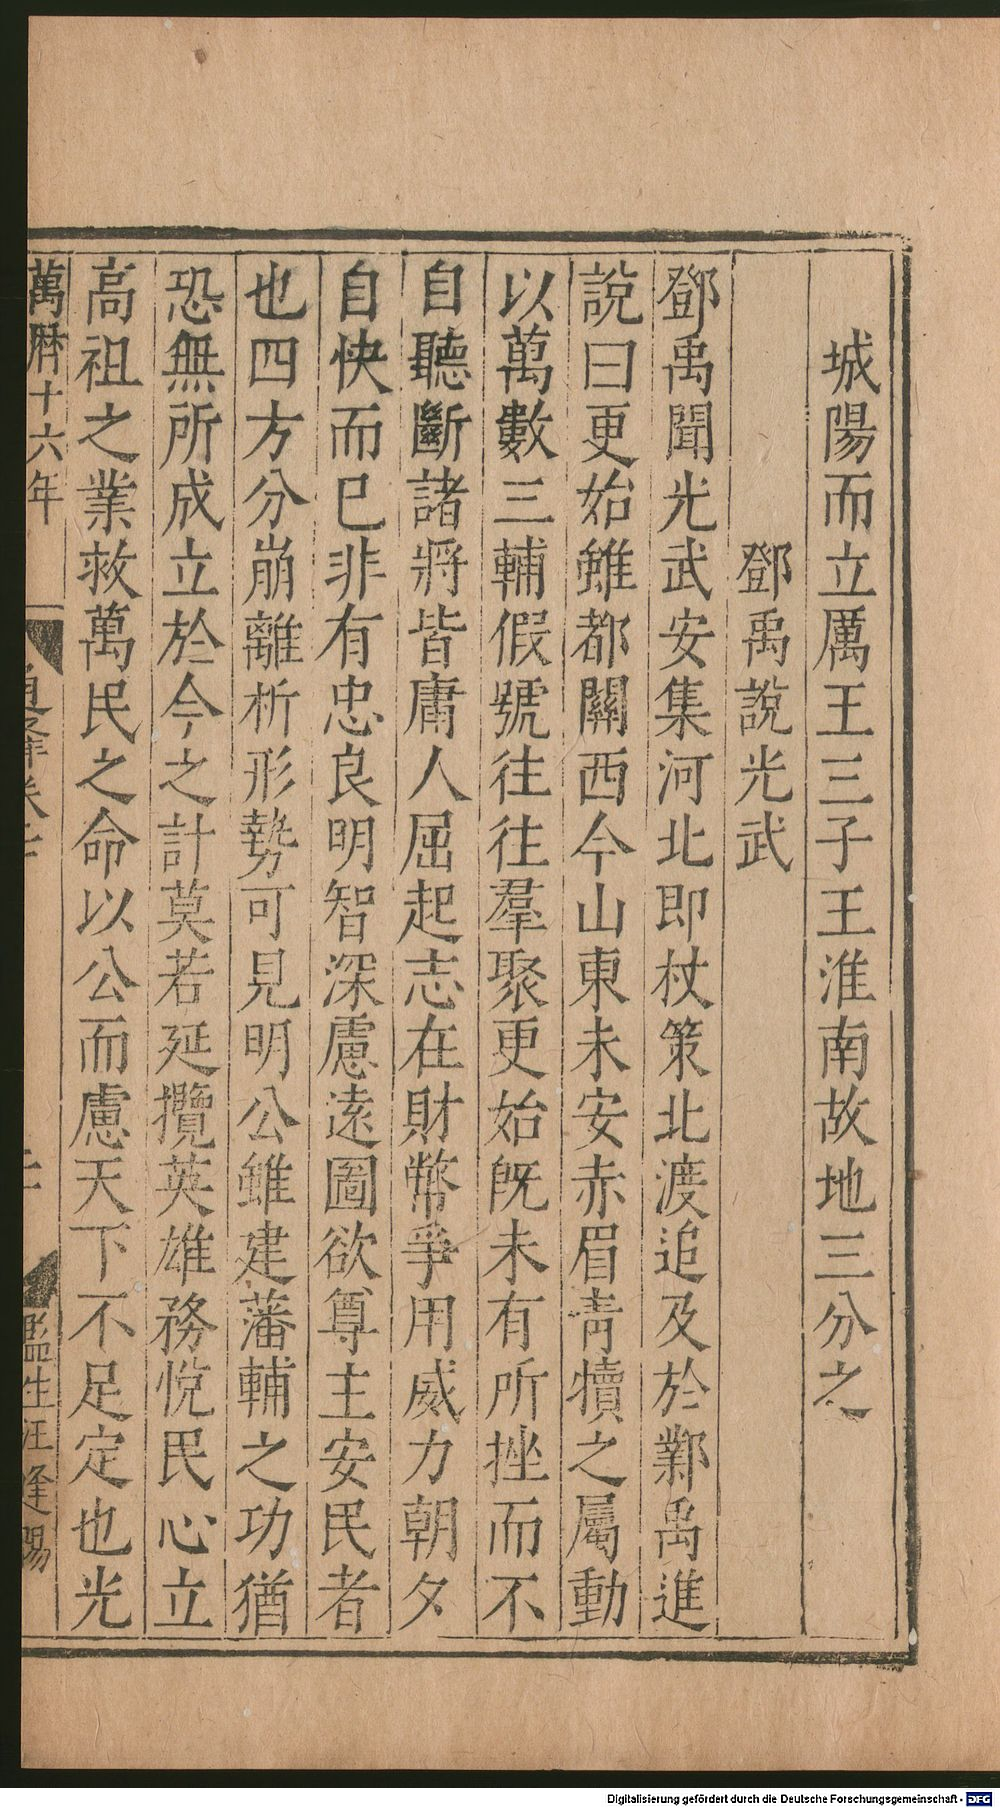 城陽而立厲王三子王淮南故地三分之
鄧禹說光武
鄧禹聞光武安集河北即杖策北渡追及於鄴禹進
說曰更始雖都關西今山東未安赤眉青犢之屬動
以萬數三輔假號往往羣聚更始既未有所挫而不
自聽斷諸將皆庸人屈起志在財幣爭用威力朝夕
自快而已非有忠良明智深慮遠圖欲尊主安民者
也四方分崩離析形勢可見明公雖建藩輔之功猶
恐無所成立於今之計莫若延攬英雄務悅民心立
高祖之業救萬民之命以公而慮天下不足定也光
萬曆十六年
監生汪逢陽
Digitalisierung gefördert durch die Deutsche Forschungsgemeinschaft - DFG